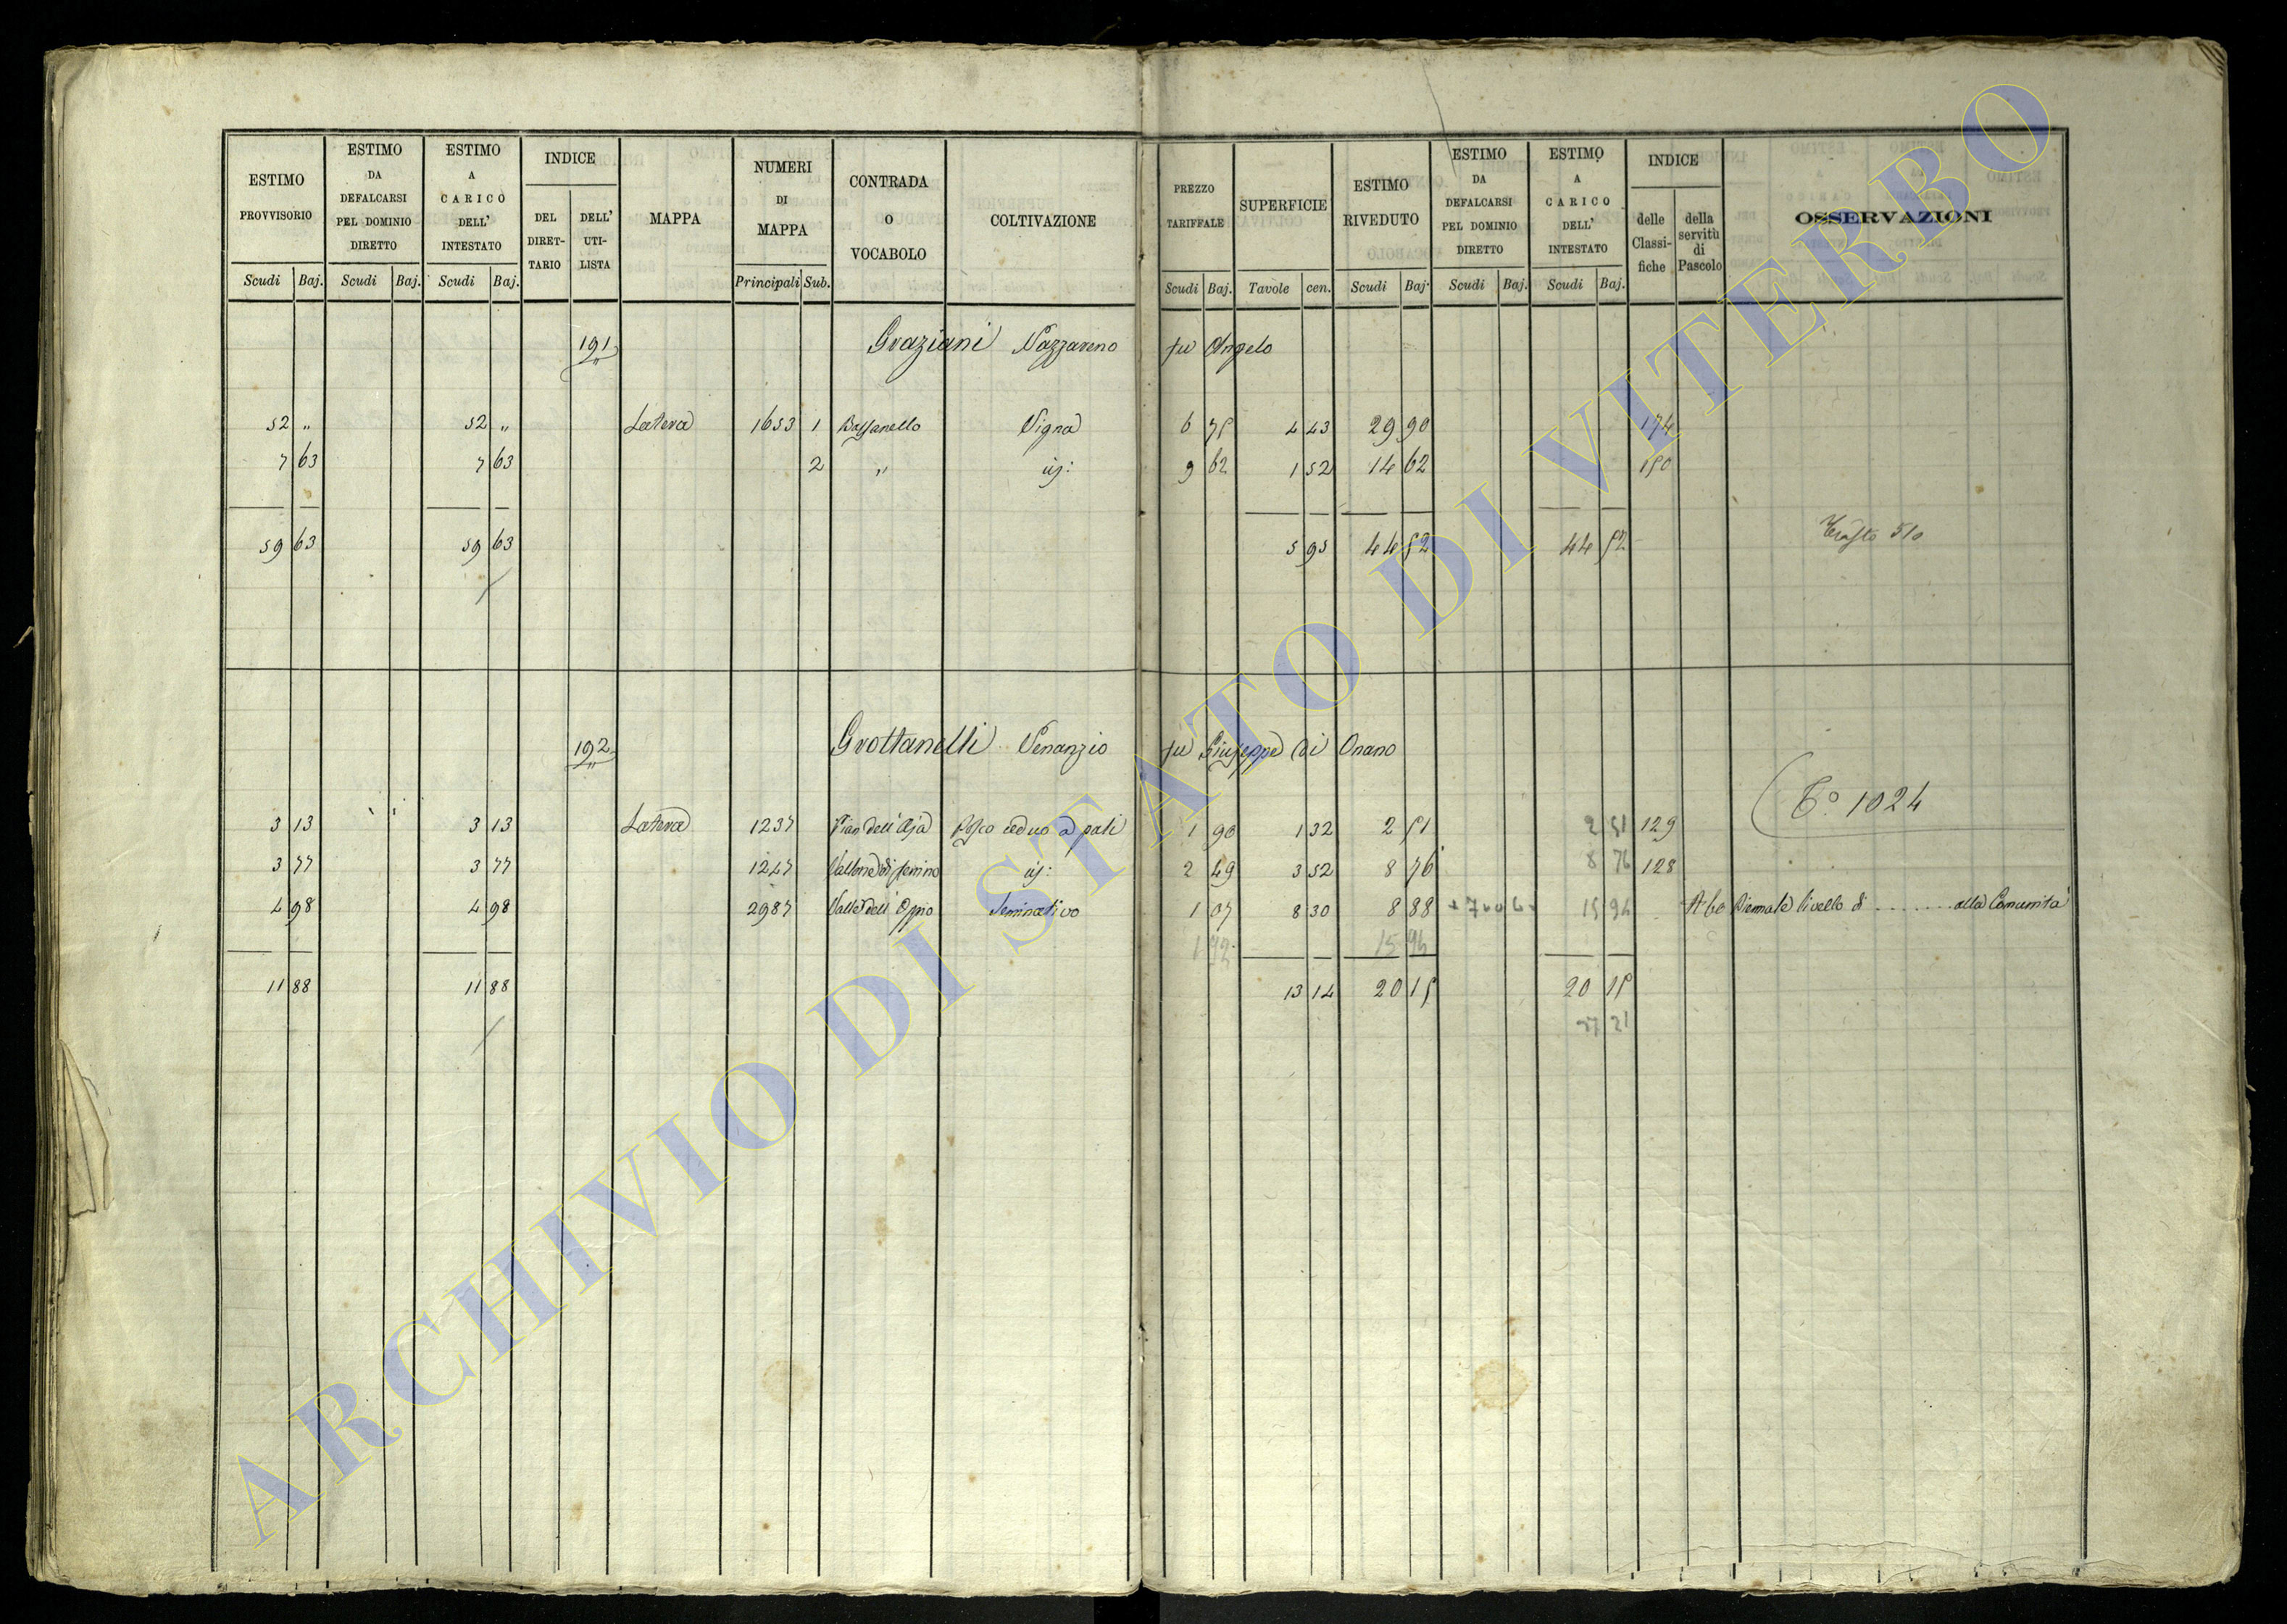 ESTIMO PROVVISORIO Scudi Baj.
ESTIMO DA DEFALCARSI PEL DOMINIO DIRETTO Scudi Baj.
ESTIMO A CARICO DELL' INTESTATO Scudi Baj.
INDICE DEL DIRET-TARIO DELL' UTI-LISTA
MAPPA
NUMERI DI MAPPA Principali Sub.
CONTRADA O VOCABOLO
COLTIVAZIONE
PREZZO TARIFFALE Scudi Baj.
SUPERFICIE Tavole cen.
ESTIMO RIVEDUTO Scudi Baj.
ESTIMO DA DEFALCARSI PEL DOMINIO DIRETTO Scudi Baj.
ESTIMO A CARICO DELL' INTESTATO Scudi Baj.
INDICE delle Classi-fiche della servitù di Pascolo
OSSERVAZIONI
191 Graziani Nazzareno fu Angelo
52 " 52 " Latera 1653 1 Vigna 6 75 4 43 29 90 174
7 63 7 63 2 " id: 9 62 1 52 14 62 150
59 63 59 63 5 95 44 52 44 52
510
192 Grottanelli Venanzio fu Giuseppe di Onano
T° 1024
3 13 3 13 Latera 1237 Pian dell'Aja Bosco ceduo a pali 1 90 1 32 2 51 2 51 129
3 77 3 77 1247 Vallone di id: 2 49 3 52 8 76 8 76 128
4 98 4 98 2987 Valle dell' Oppio Seminativo 1 07 8 30 8 88 15 94 A bo Biennale livello di ........ alla Comunità
15 94
11 88 11 88 13 14 20 15 20 15
27 21
ARCHIVIO DI STATO DI VITERBO